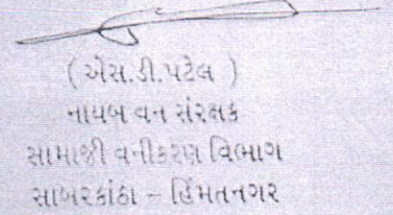 ( એસ.ડી.પટેલ )
નાયબ વન સંરક્ષક
સામાજી વનીકરણ વિભાગ
સાબરકાંઠા – હિંમતનગર